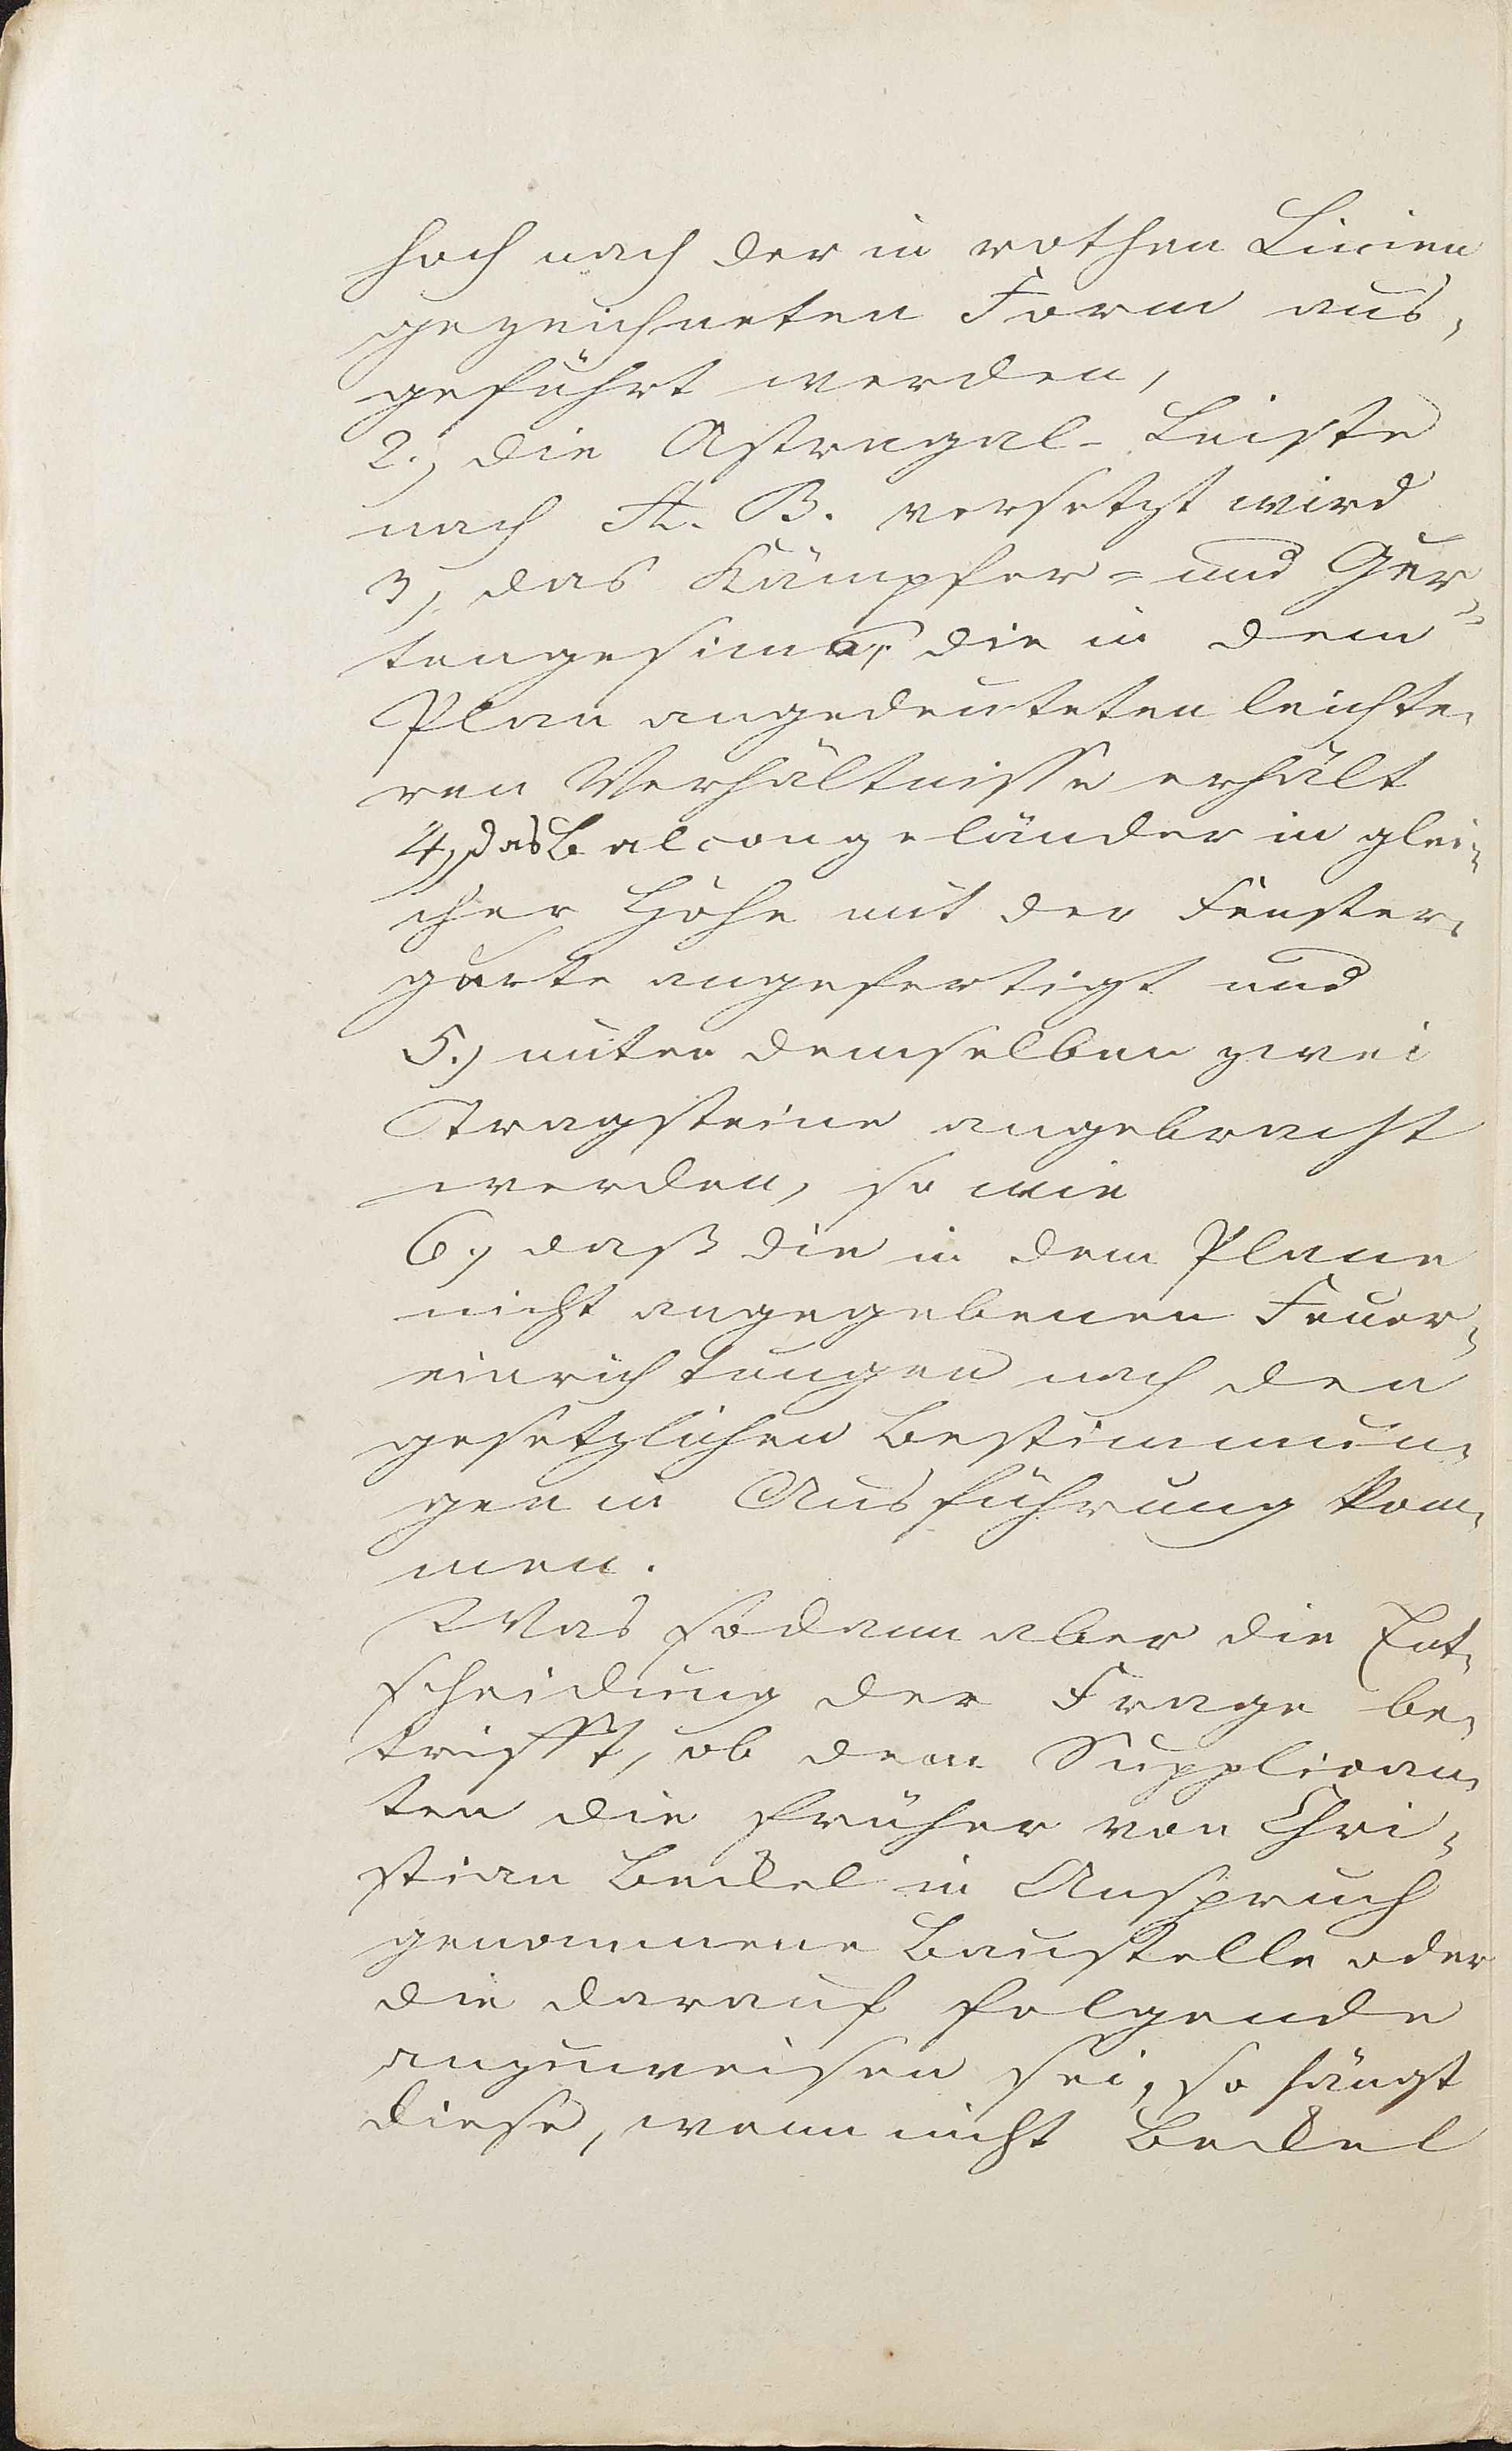 hoch nach der in rothen Linien
gezeichneten Form aus,
geführt werden,
2.) die Astragal- Leiste
nach A. B. versetzt wird
3) das Kämpfer= und Gur,,
tengesims, die in dem
Plan angedeuteten leichte,
ren Verhältnisse erhält
4.) das Balcongeländer in glei,
cher Höhe mit der Fenster,
gurte angefertigt und
5.) unter demselben zwei
Tragsteine angebracht
werden, so wie
6.) daß die in dem Plane
nicht angegebenen Feuer,
einrichtungen nach den
gesetzlichen Bestimmun,
gen in Ausführung kom,
men.
Was sodann aber die Ent,
scheidung der Frage be,
trifft, ob dem Supplican,
ten die früher von Chri,
stian Beckel in Anspruch
genommene Baustelle oder
die darauf folgende
anzuweisen sei, so hängt
diese, wenn nicht Beckel